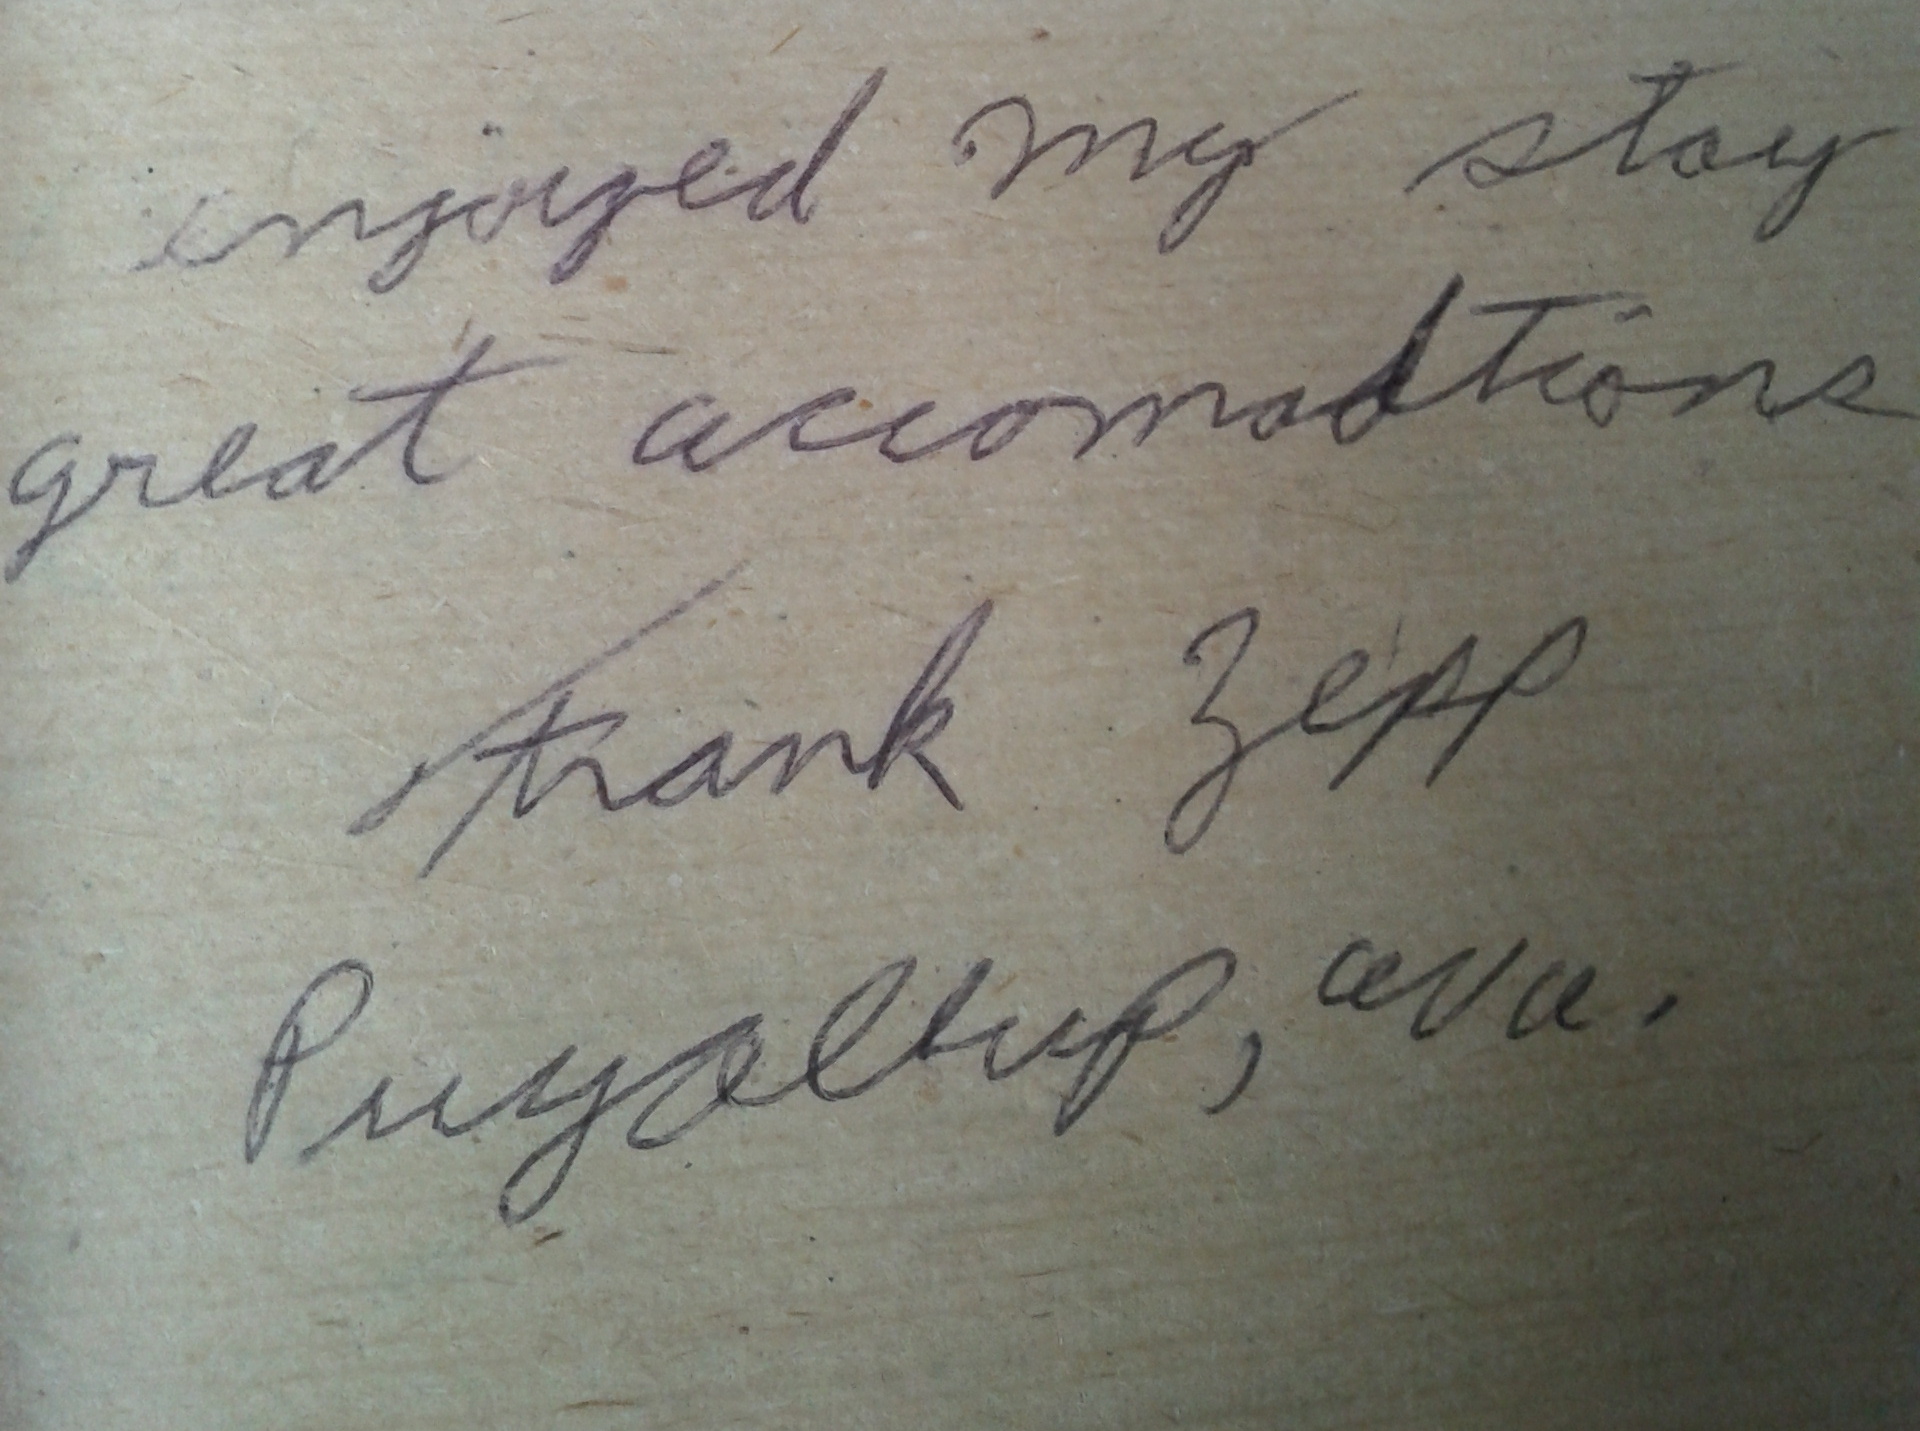 enjoyed my stay
great accomodtions
Frank Zepp
Puyallup, wa.